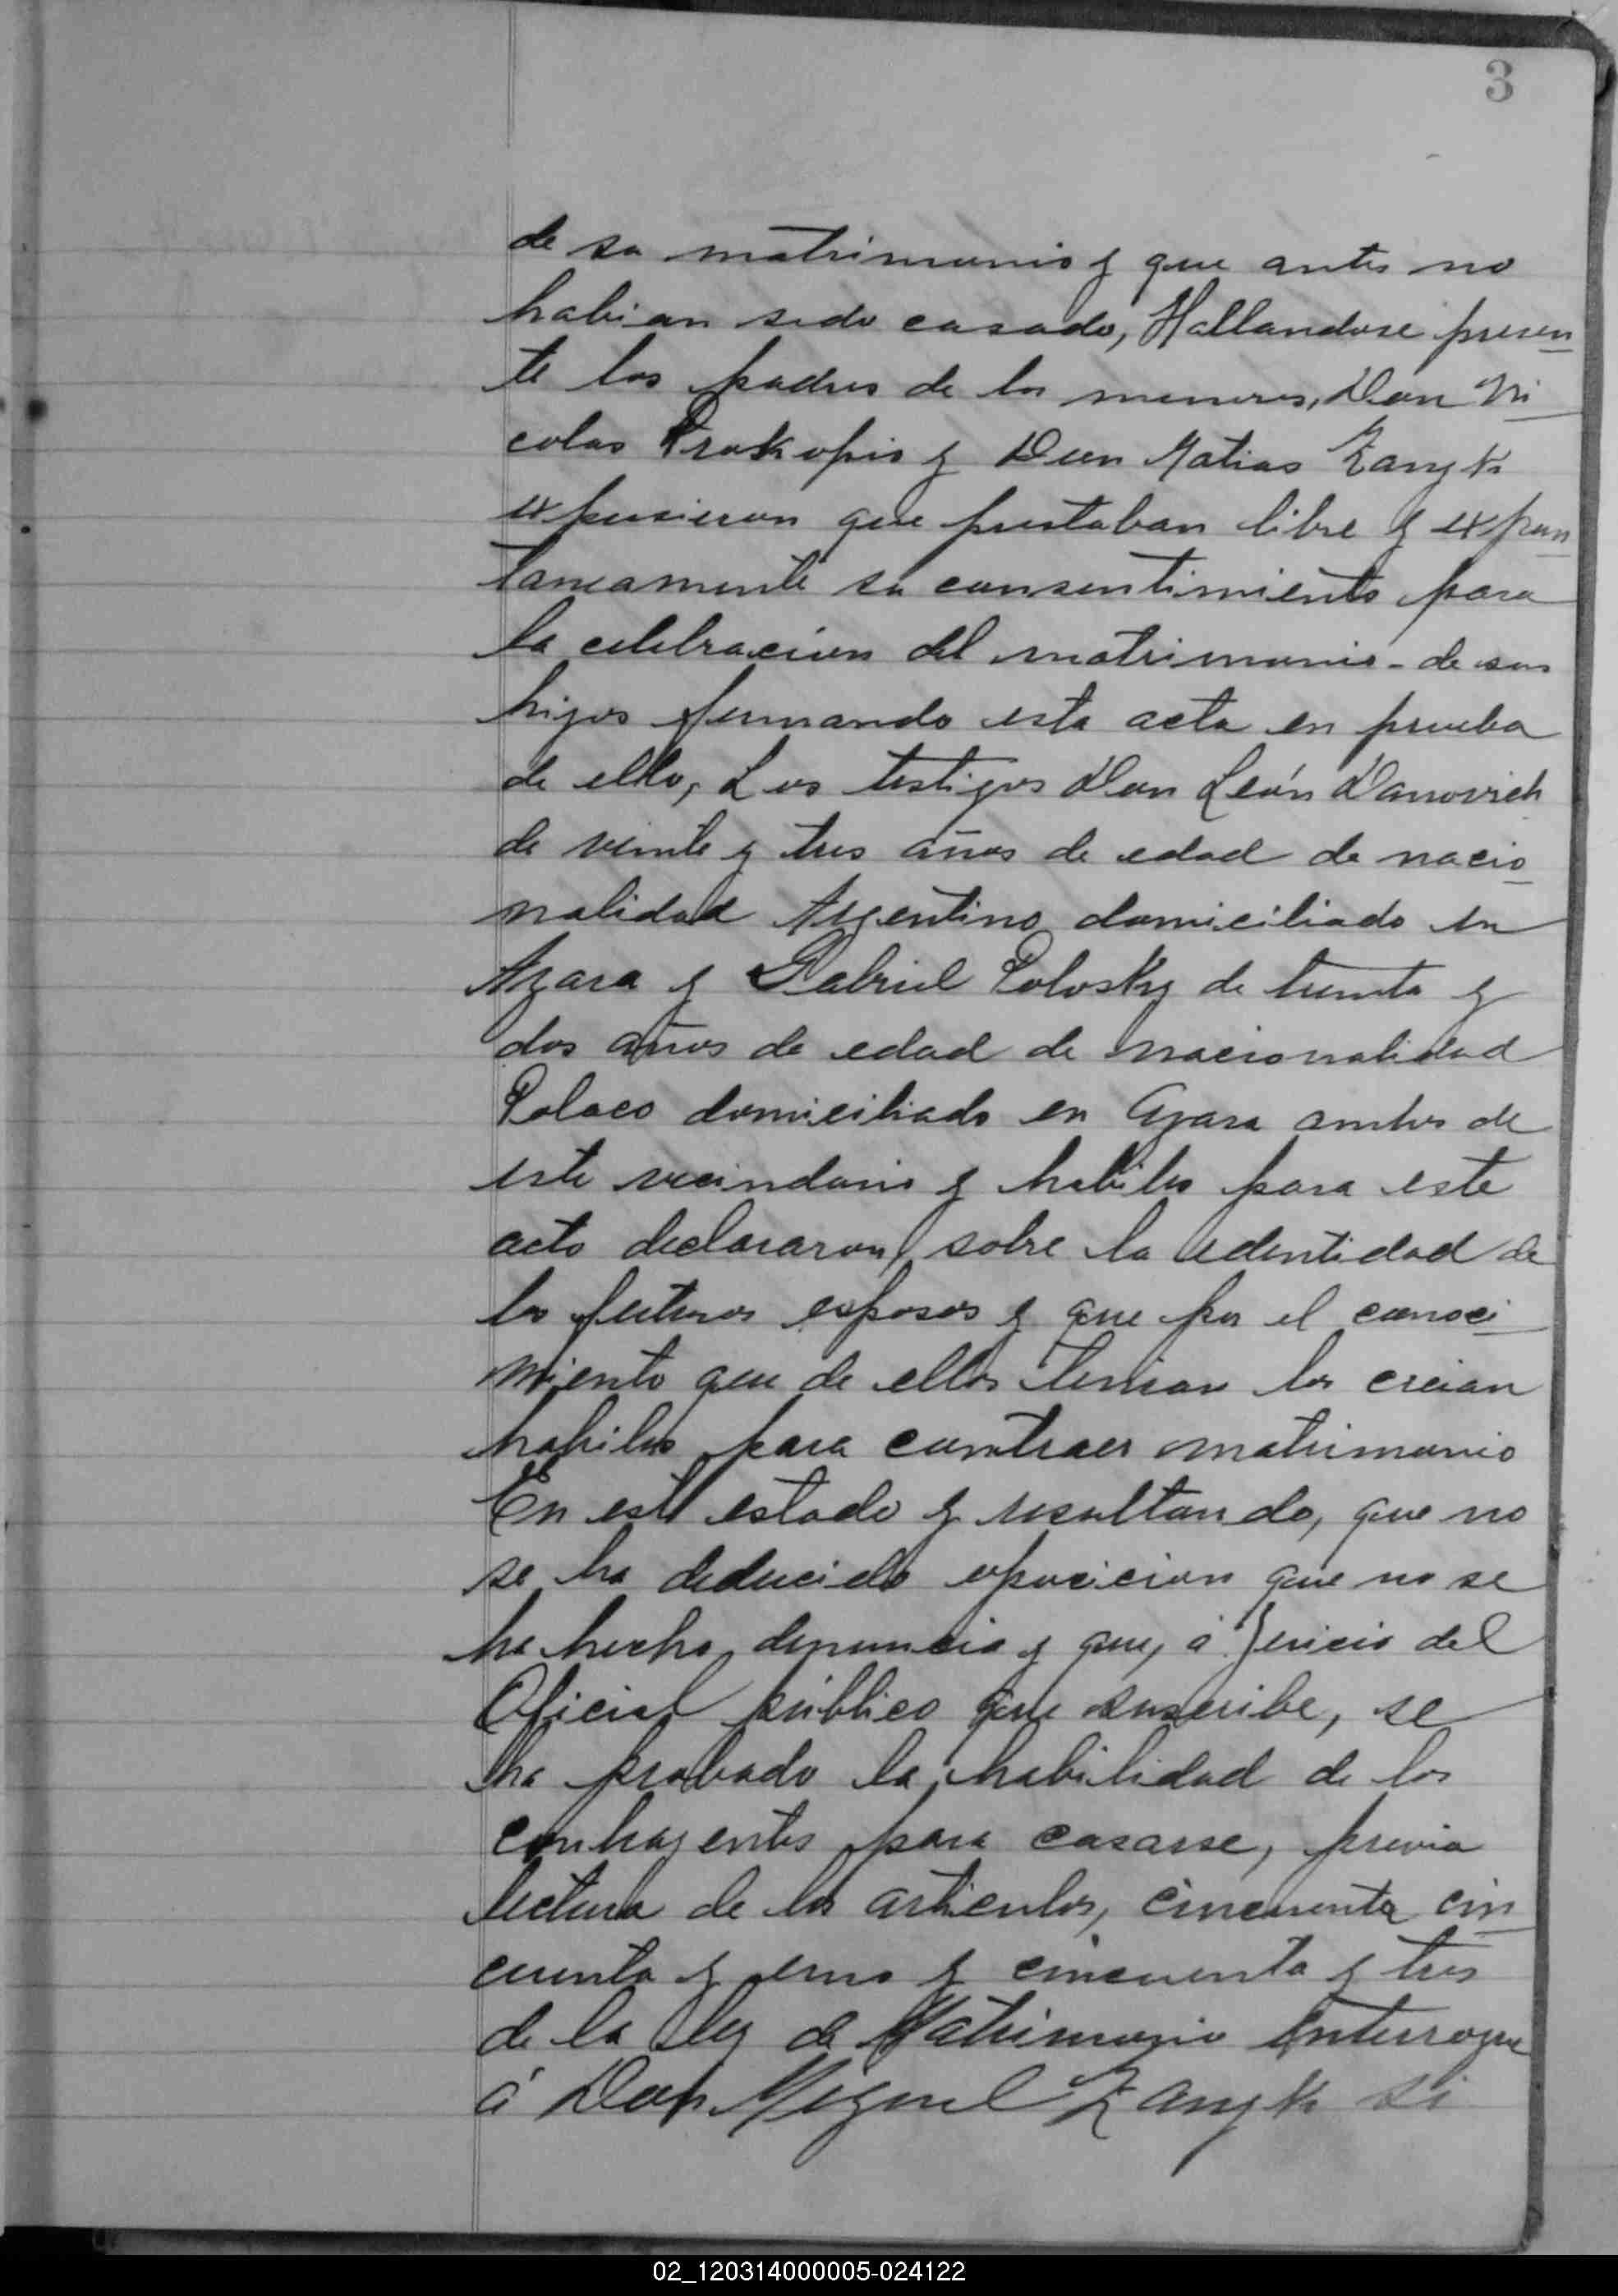 3
de su matrimonio y que antes no
habian sido casado, Hallandose presen
te los padres de los menores, Don Ni
colas Prokopio y Don Matias Zang
expusieron que prestaban libre y expon
taneamente su consentimiento para
la celebracion del matrimonio - de sus
hijos firmando esta acta en prueba
de ello, Los testigos Don León Danovich
de veinte y tres años de edad de nacio
nalidad Argentino domiciliado en
Azara y Gabriel Polosky de treinta y
dos años de edad de nacionalidad
Polaco domiciliado en Azara ambos de
este vecindario y habiles para este
acto declararon, sobre la identidad de
los futuros esposos y que por el conoci
miento que de ellos tenian los creian
habiles para contraer matrimonio
En este estado y resultando, que no
se ha deducido oposicion que no se
ha hecho denuncia y que, á juicio del
Oficial público que suscribe, se
ha probado la habilidad de los
contrayentes para casarse, previa
lectura de los articulos, cincuenta cin
cuenta y uno y cincuenta y tres
de la ley de Matrimonio Interrogue
á Don Miguel si
02_120314000005-024122